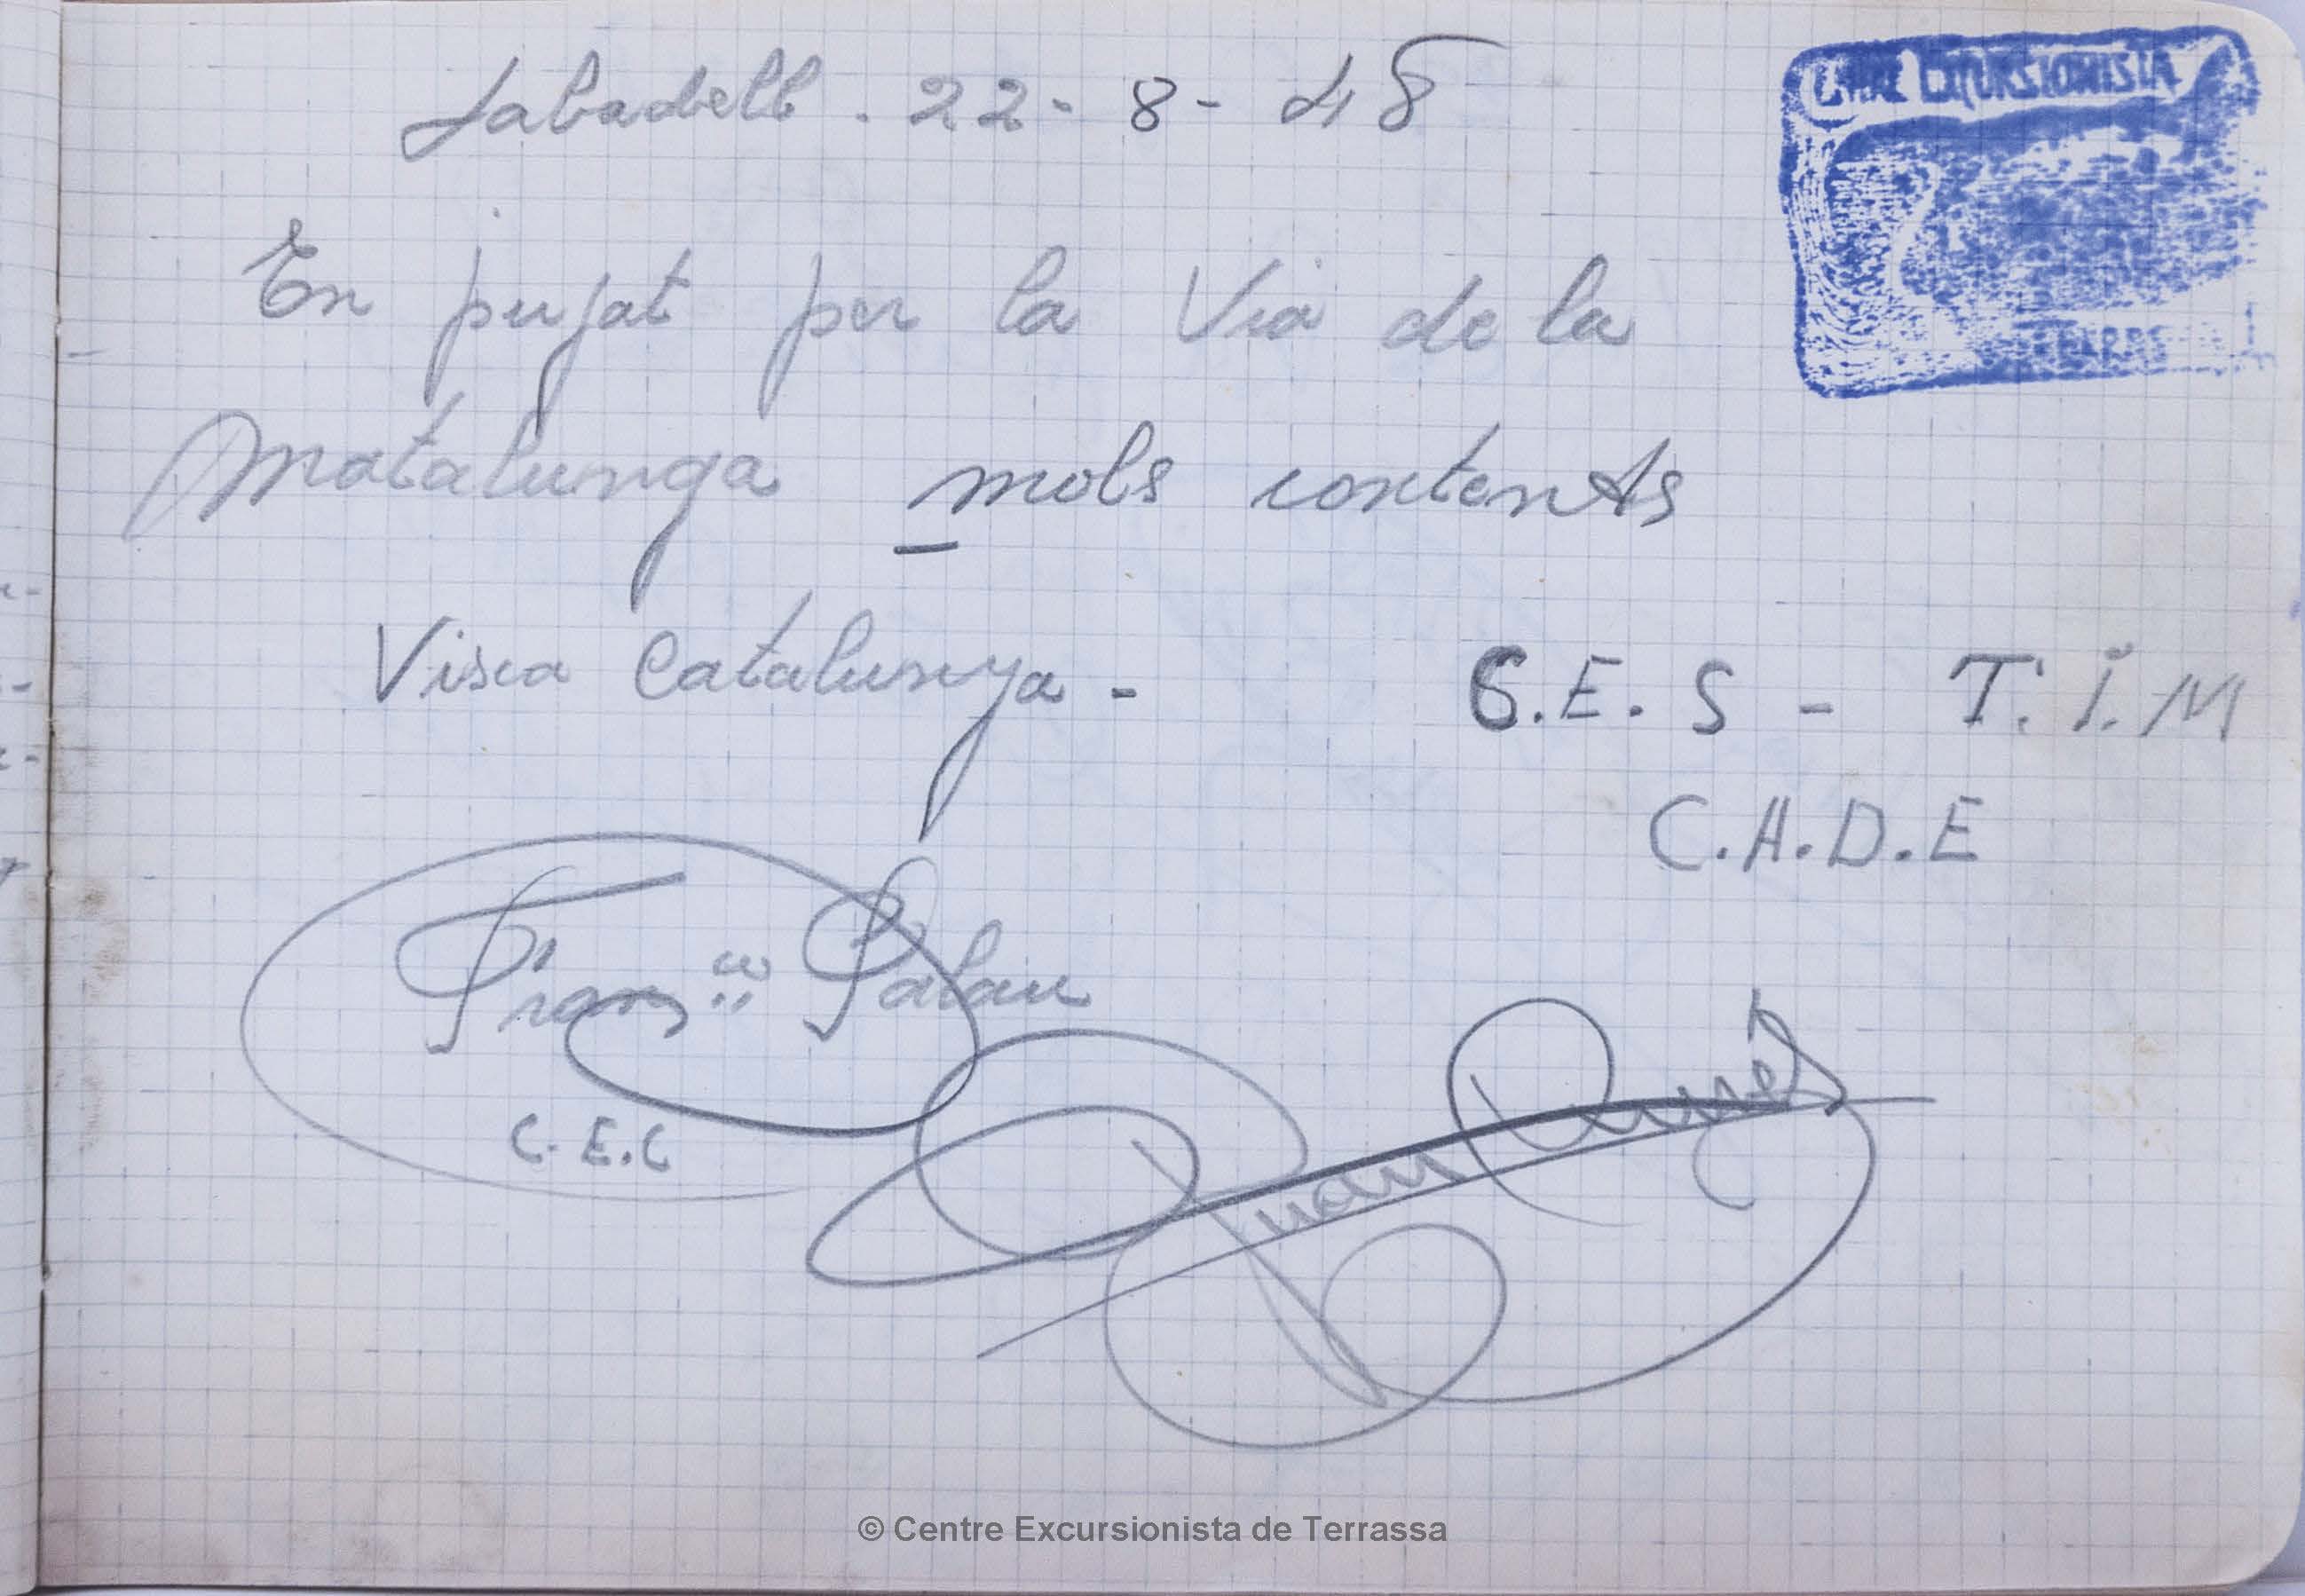 Sabadell. 22-8-48
CENTRE EXCURSIONISTA
TERRAS
En pujat per la Via de la
Matalunga mols contents
Visca Catalunya -
C.E.S - T.I.M
C.A.D.E
Franco Palau
C.E.C
Juan
© Centre Excursionista de Terrassa